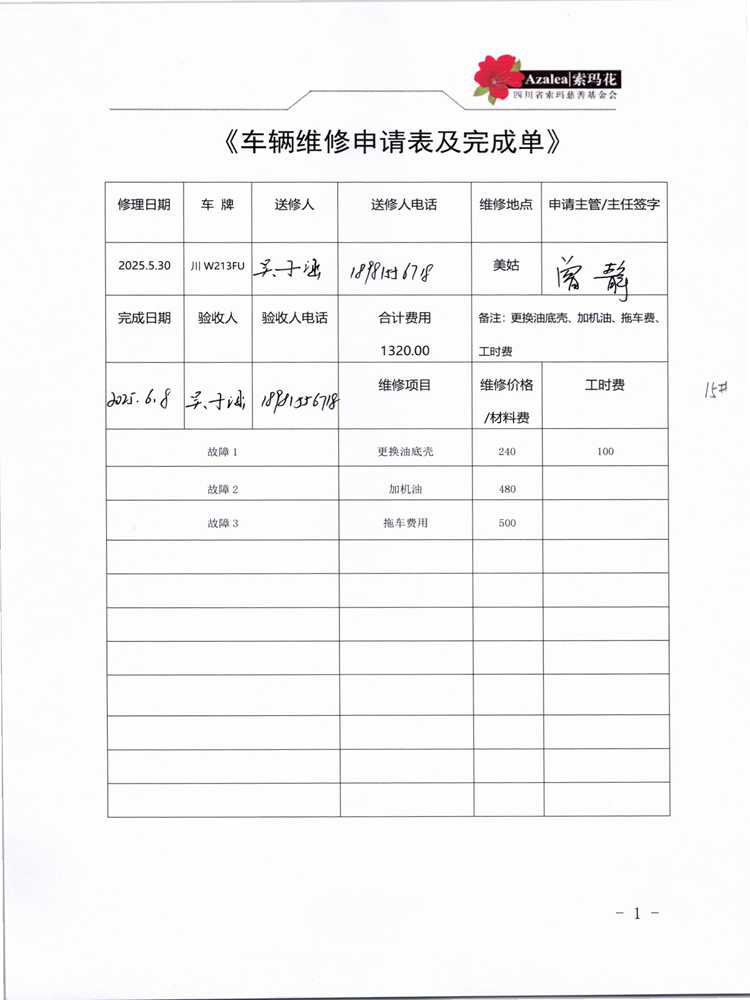 Azalea|索玛花
四川省索玛慈善基金会
《车辆维修申请表及完成单》
修理日期 车 牌 送修人 送修人电话 维修地点 申请主管/主任签字
2025.5.30 川 W213FU 吴子涵 18981556718 美姑 曾静
完成日期 验收人 验收人电话 合计费用 备注：更换油底壳、加机油、拖车费、
1320.00 工时费
2025.6.8 吴子涵 18981556718 维修项目 维修价格 工时费
/材料费
15#
故障 1 更换油底壳 240 100
故障 2 加机油 480
故障 3 拖车费用 500
- 1 -